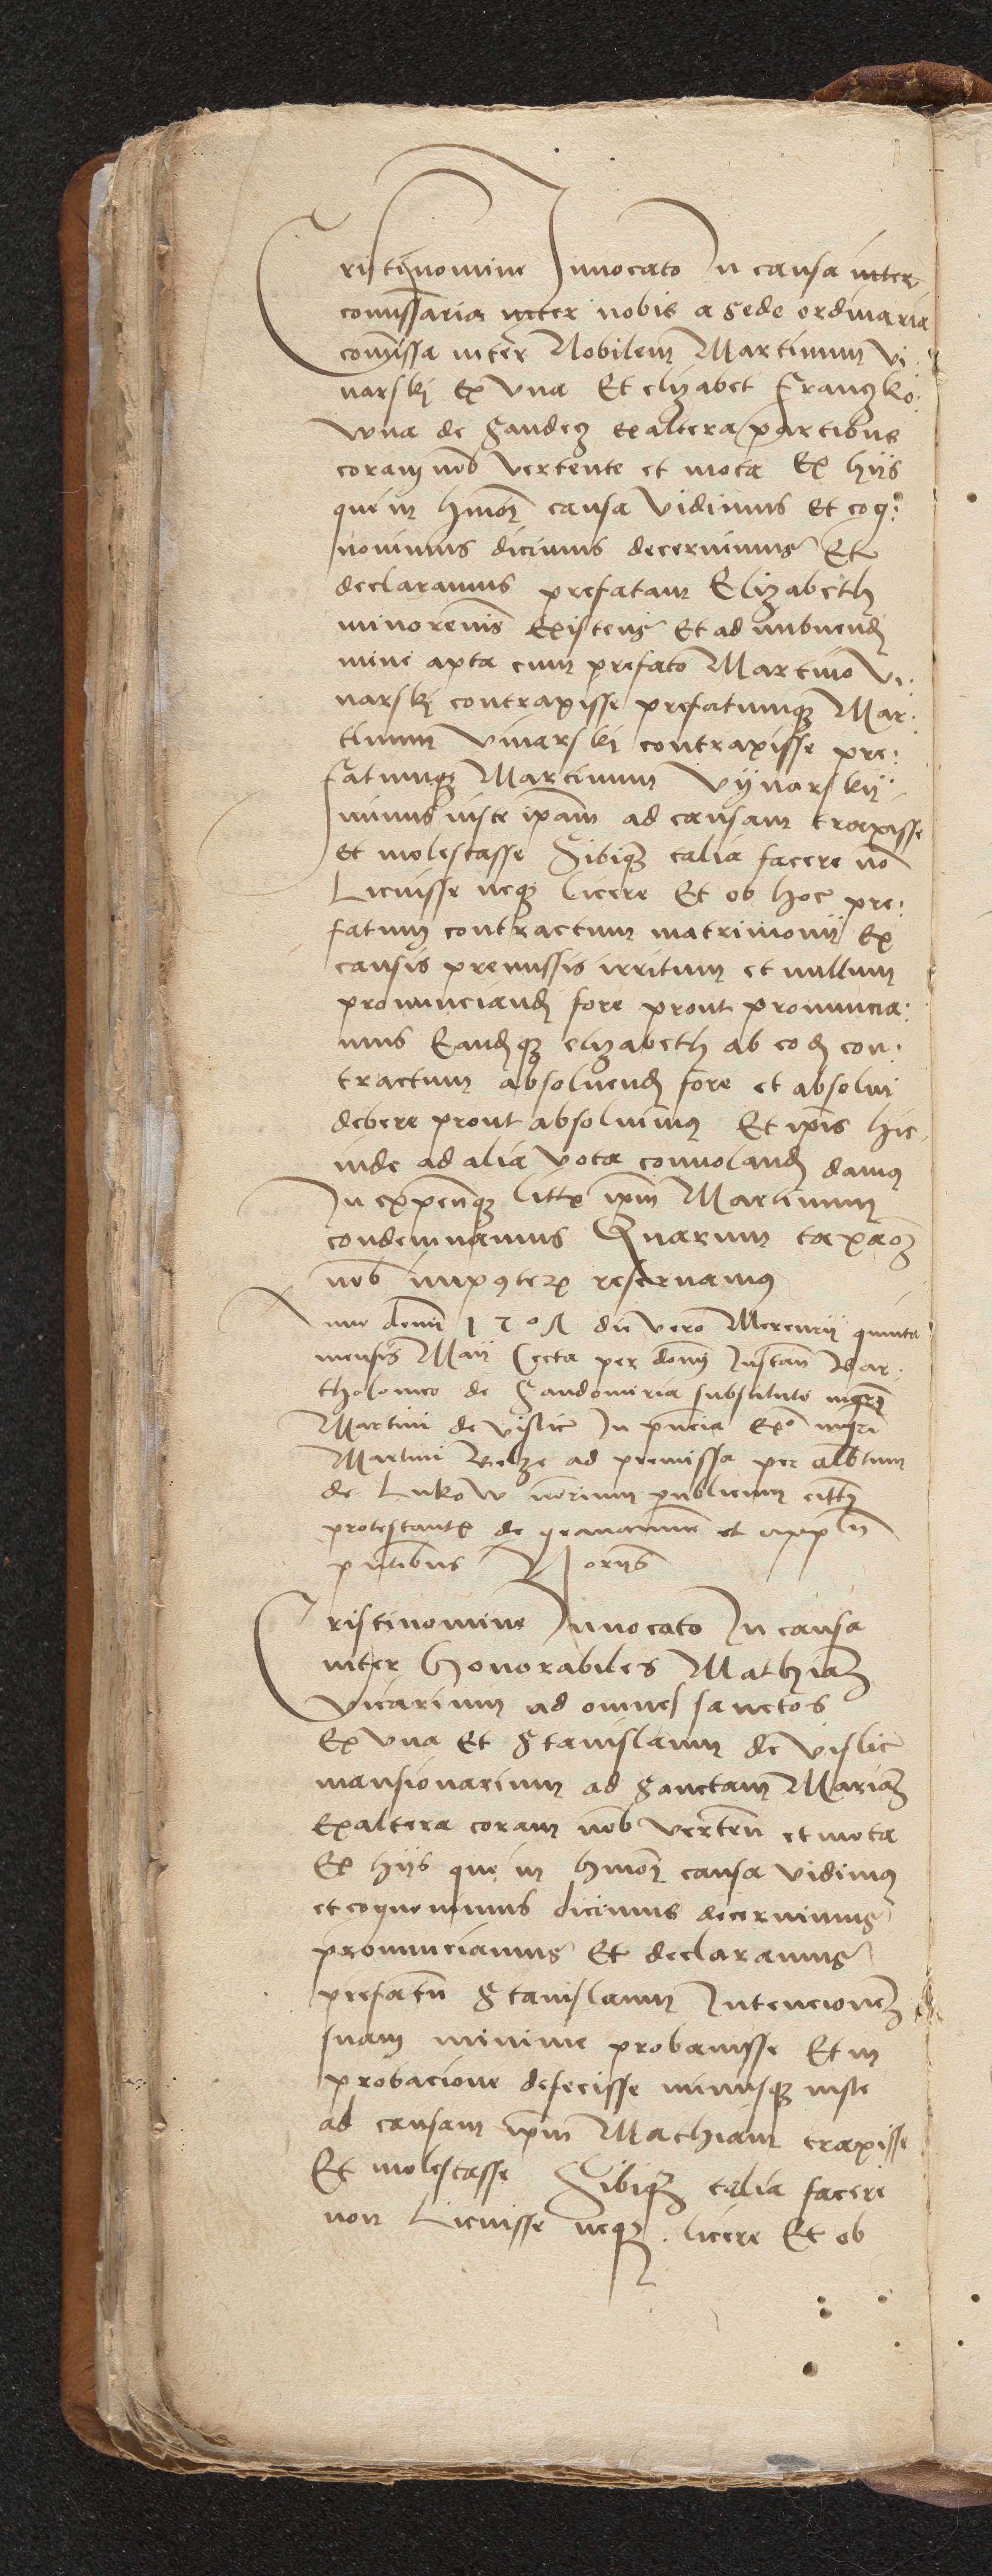 Cristinomine Innocato In causa inter
comissaria inter nobis a Sede ordinaria
comissa inter Nobilem Martinum Vi
narskj Ex Vna Et elizabet Franczko:
wna de Sandecz ex altera partibus
coram nob vertente et mota Ex hijs
que in hmoi causa Vidimus Et cog:
novimus dicimus decernimus Et
declaramus prefatam Elizabeth
minorenis Existens Et ad nubend
mine apta cum prefato Martino Vi:
narskj contraxisse prefatumq Mar:
tinum Vinarskj contraxisse pre:
fatumq Martinum Vÿnarskÿ
minus iuste ipam ad causam traxisse
et molestasse Sibiq talia facere no
Licuisse neq licere Et ob hoc pre:
fatum contractum matrimonij Ex
causis premissis irritum et nullum
pronunciand fore prout pronuncia:
mus Eandq elizabeth ab eod con:
tractum absoluend fore et absolui
debere prout absoluimus Et ipis hic
inde ad alia vota conuoland damus
In expensq litis ipm Martinum
condemnamus Quarum taxacoz
nob imposter reseruamus
Anno domi 150 die vero Mercurij quinta
mensis Maij lecta per domi Instan Bar:
tholomeo de Sandomiria substituto mgri
Martini de vislic In pncia Exo mgri
Martini Belze ad premissa per albtum
de Lukow norium publicum citti
protestante de grauamine et appln
pntibus Norijs
Cristinomine Innocato In causa
inter Honorabiles Mathiam
vicarium ad omnes sanctos
Ex vna Et Stanislaum de vislic
mansionarium ad Sanctam Mariam
Exaltera coram nob verten et mota
Ex hijs que in hmoi causa vidimus
et cognouimus dicimus decernimus
pronunciamus Et declaramus
prefatu Stanislaum Intencionem
suam minime probauisse Et in
probacione defecisse minusq iuste
ad causam ipm Mathiam traxisse
Et molestasse Sibiq talia facere
non Licuisse neq licere Et ob